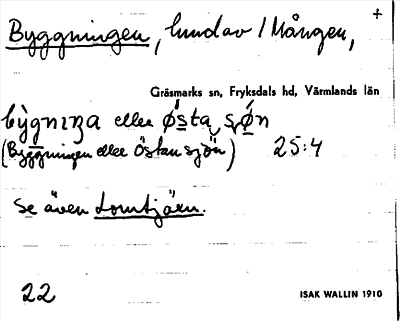 Byggningen, lundav / Mången, +
Gräsmarks sn, Fryksdals hd, Värmlands län
bỳgnıŋa eller østa sǿn
(Byggningen eller Östan sjön) 25:4
Se även Lomtjärn.
22
ISAK WALLIN 1910